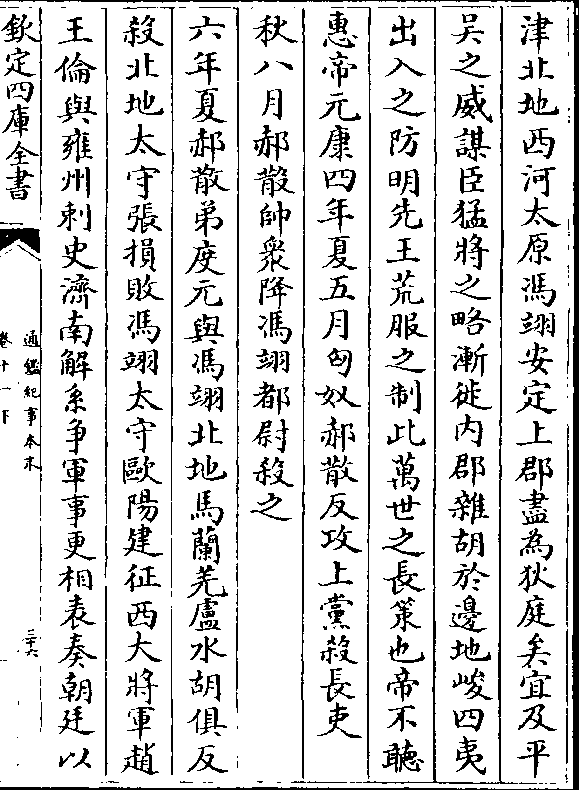 津北地西河太原馮翊安定上郡盡為狄庭矣宜及平
吳之威謀臣猛將之略漸徙内郡雜胡於邊地峻四夷
出入之防明先王荒服之制此萬世之長策也帝不聽
惠帝元康四年夏五月匈奴郝散反攻上黨殺長吏
秋八月郝散帥衆降馮翊都尉殺之
六年夏郝散弟度元與馮翊北地馬蘭羌盧水胡俱反
殺北地太守張損敗馮翊太守歐陽建征西大將軍趙
王倫與雍州刺史濟南解系争軍事更相表奏朝廷以
欽定四庫全書
通鑑紀事本末
卷十一下
三十六